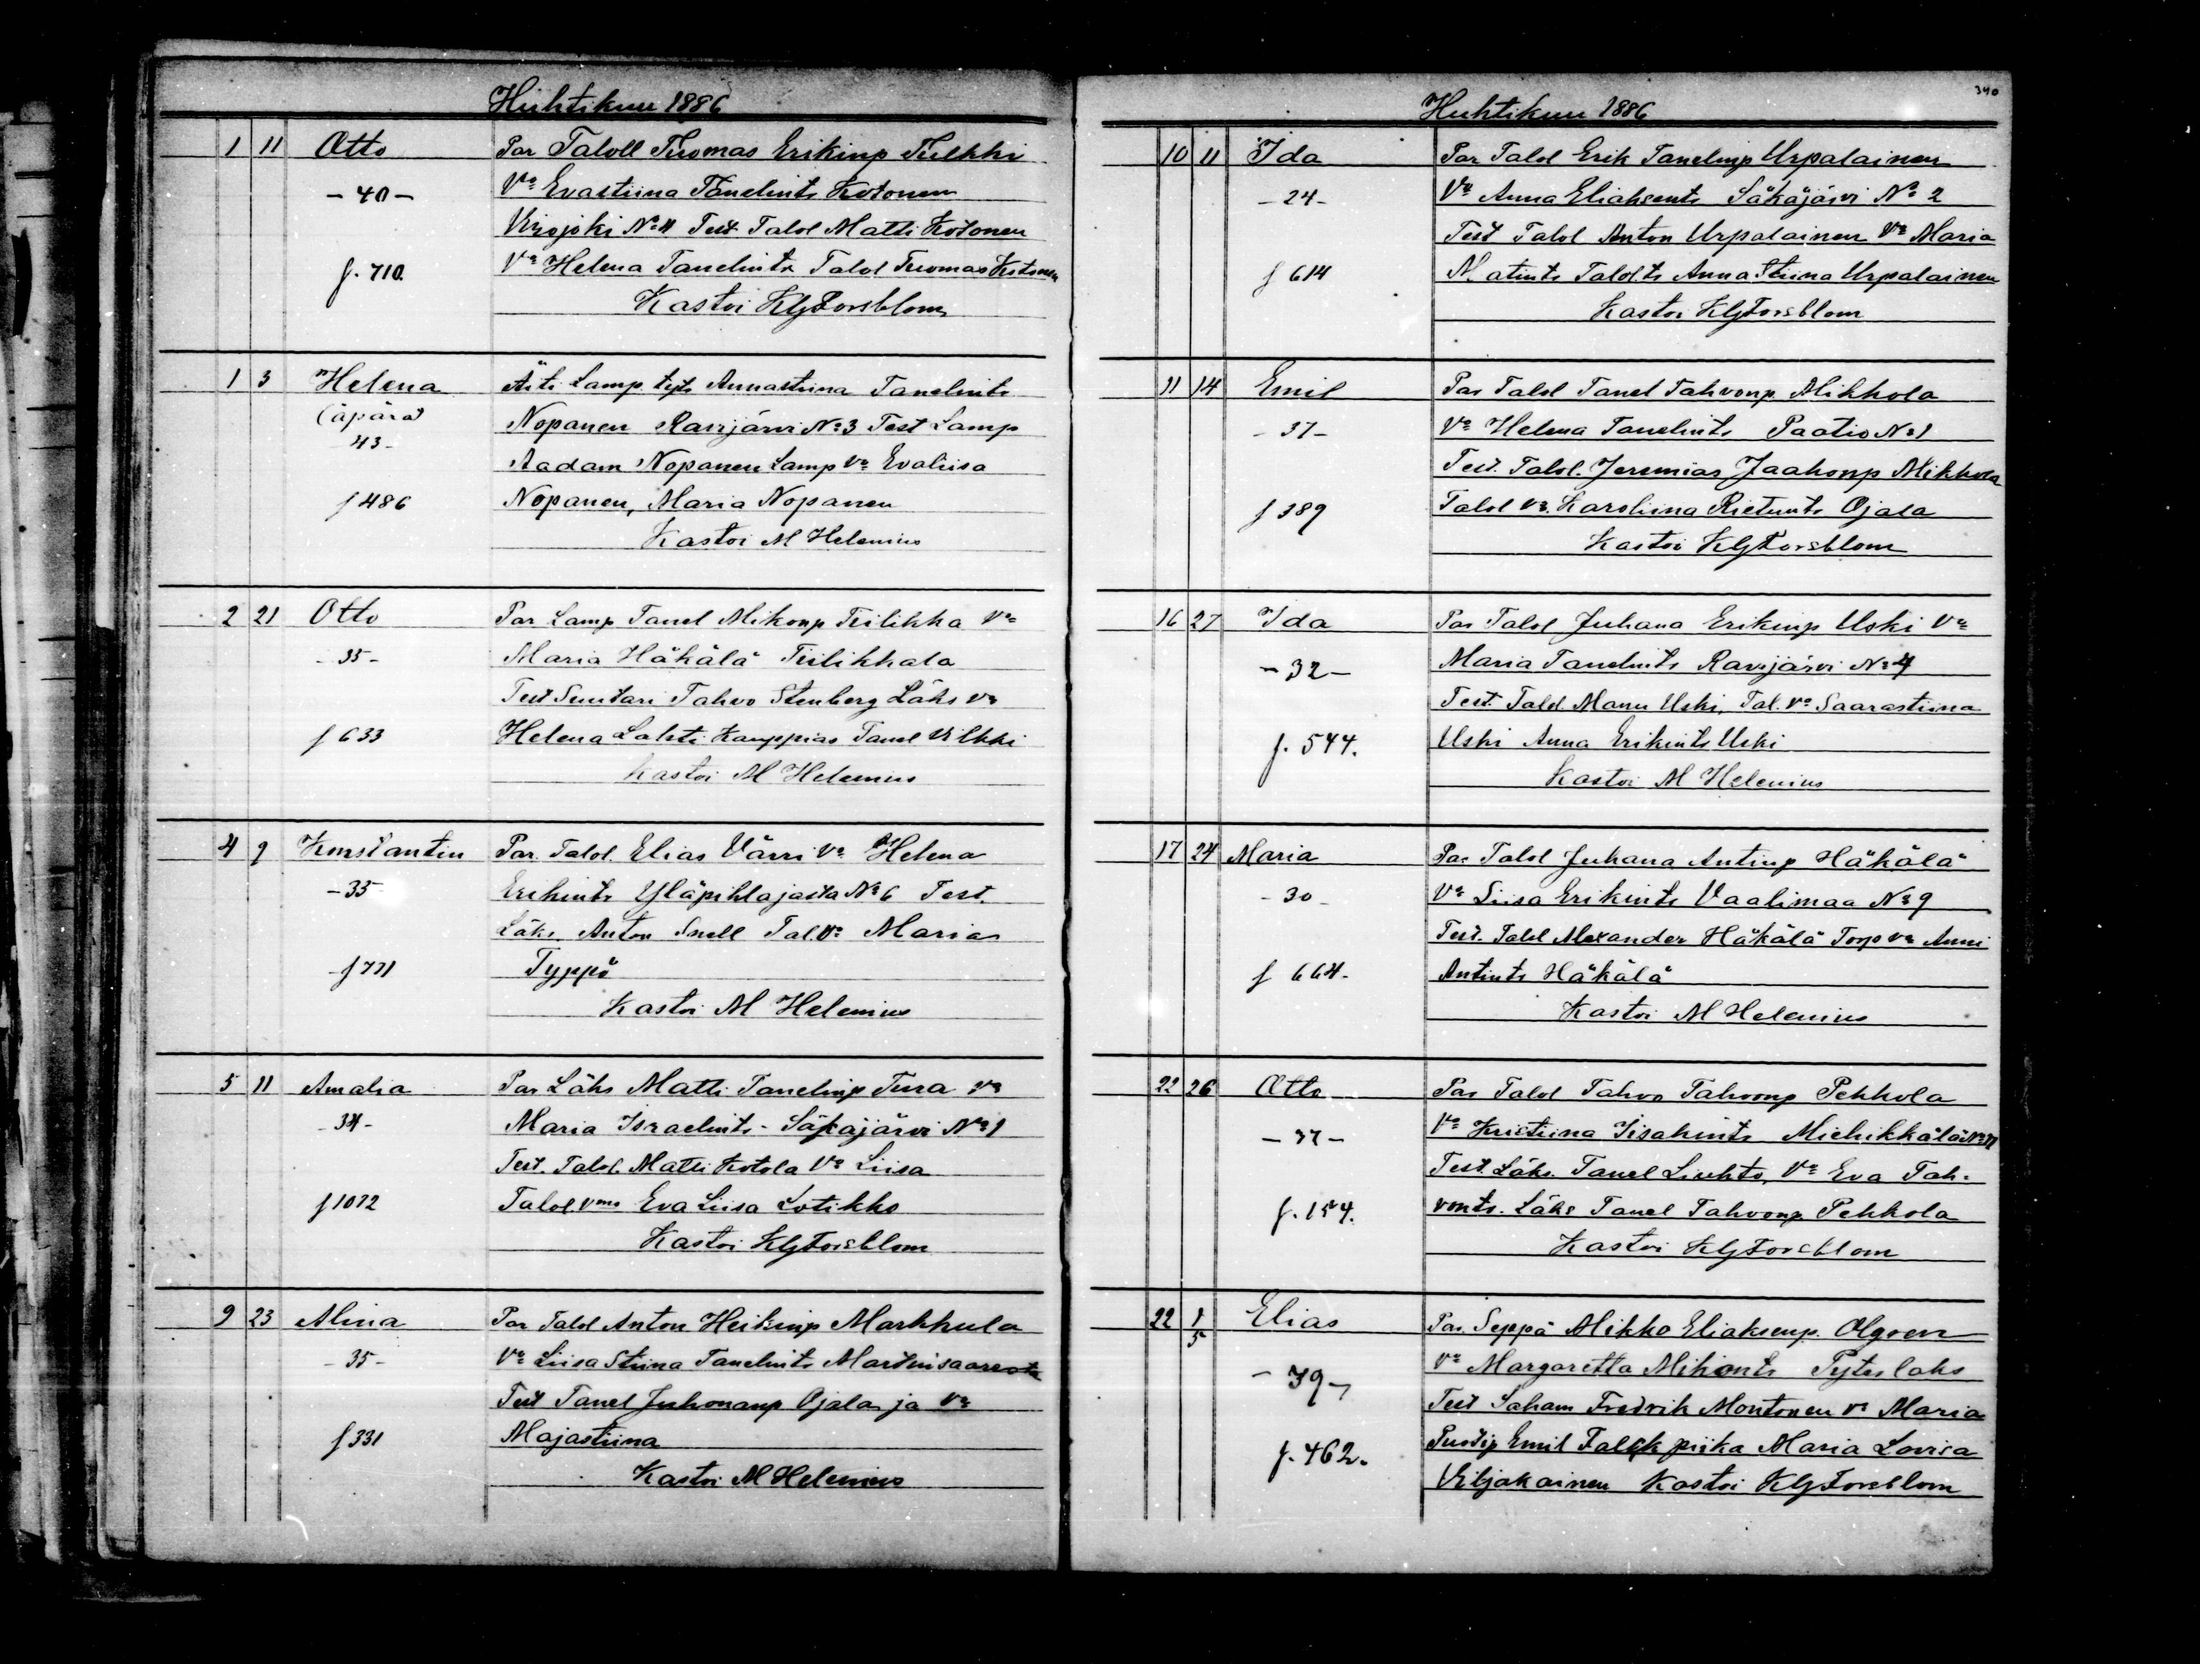 Huhtikuu 1886
1 11 Otto Par Taloll Tuomas Erikinp Tulkki
- 40 - Va Evastiina Tanelints Kotonen
Virojoki No 11 Test Talol Matti Kotonen
f. 710 Va Helena Tanelints Talol Tuomas Kotonen
Kastoi KGForsblom
1 3 Helena Äiti Lamp. tytt Annastiina Tanelints
(äpärä) Nopanen Ravijärvi No 3 Test Lamp
43- Aadam Nopanen Lamp va Evaliisa
f 486 Nopanen, Maria Nopanen
Kastoi M Helenius
2 21 Otto Par Lamp Tanel Mikonp Tiilikka Va
- 35 - Maria Häkälä Tiilikkala
Test Suutari Tahvo Stenberg Läks va
f 633 Helena Lahti Kauppias Tanel Vilkki
Kastoi M Helenius
4 9 Konstantin Par. Talol. Elias Värri va Helena
- 35 Erikints Yläpihlajasta No 6 Test.
Läks. Anton Snell Tal. Va Maria
f 771 Typpö
Kastoi M Helenius
5 11 Amalia Par Läks Matti Tanelinp Tura va
- 34 - Maria Israelints - Säkäjärvi No 1
Test. Talol. Matti Kotola Va Liisa
f 1072 Talol vmo Eva Liisa Lotikko
Kastoi KGForsblom
9 23 Alina Par Talol Anton Heikinp Markkula
- 35 - Va Liisa Stiina Tanelints Martinsaaresta
Test Tanel Juhonanp Ojala ja va
f 331 Majastiina
Kastoi M Helenius
340
Huhtikuu 1886
10 11 Ida Par Talol Erik Tanelinp Urpalainen
- 24 - Va Anna Eliaksents Säkäjärvi No 2
Test Talol Anton Urpalainen Va Maria
f 614 Matints Talol. ts Anna Stiina Urpalainen
Kastoi KGForsblom
11 14 Emil Par Talol Tanel Tahvonp. Mikkola
- 37 - Va Helena Tanelints Paatio No 1
Test. Talol. Jeremias Jaakonp Mikkola
f 389 Talol va. Karoliina Rietunts Ojala
Kastoi KGForsblom
16 27 Ida Par Talol Juhana Erikinp Uski Va
- 32 - Maria Tanelints Ravijärvi No 4
Test. Talol Manu Uski, Tal. va Saarastiina
f. 544. Uski Anna Erikints Uski
Kastoi M Helenius
17 24 Maria Par Talol Juhana Antinp Häkälä
- 30 - Va Liisa Erikints Vaalimaa No 9
Test. Talol Alexander Häkälä Torp va Anni
f 664. Antints Häkälä
Kastoi M Helenius
22 26 Otto Par Talol Tahvo Tahvonp Pekkola
- 37 - Va Kristiina Iisakints Miehikkälä No 11
Test. Läks. Tanel Liuhto, Va Eva Tah-
f. 154. vonts. Läks Tanel Tahvonp Pekkola
Kastoi KGForsblom
22 1/5 Elias Par. Seppä Mikko Eliaksenp. Olgren
- 39 - Va Margaretta Mikonts Pyterlaks
Test Saham Fredrik Montonen va Maria
f. 462. Emil Falck piika Maria Lovisa
Viljakainen Kastoi KGForsblom